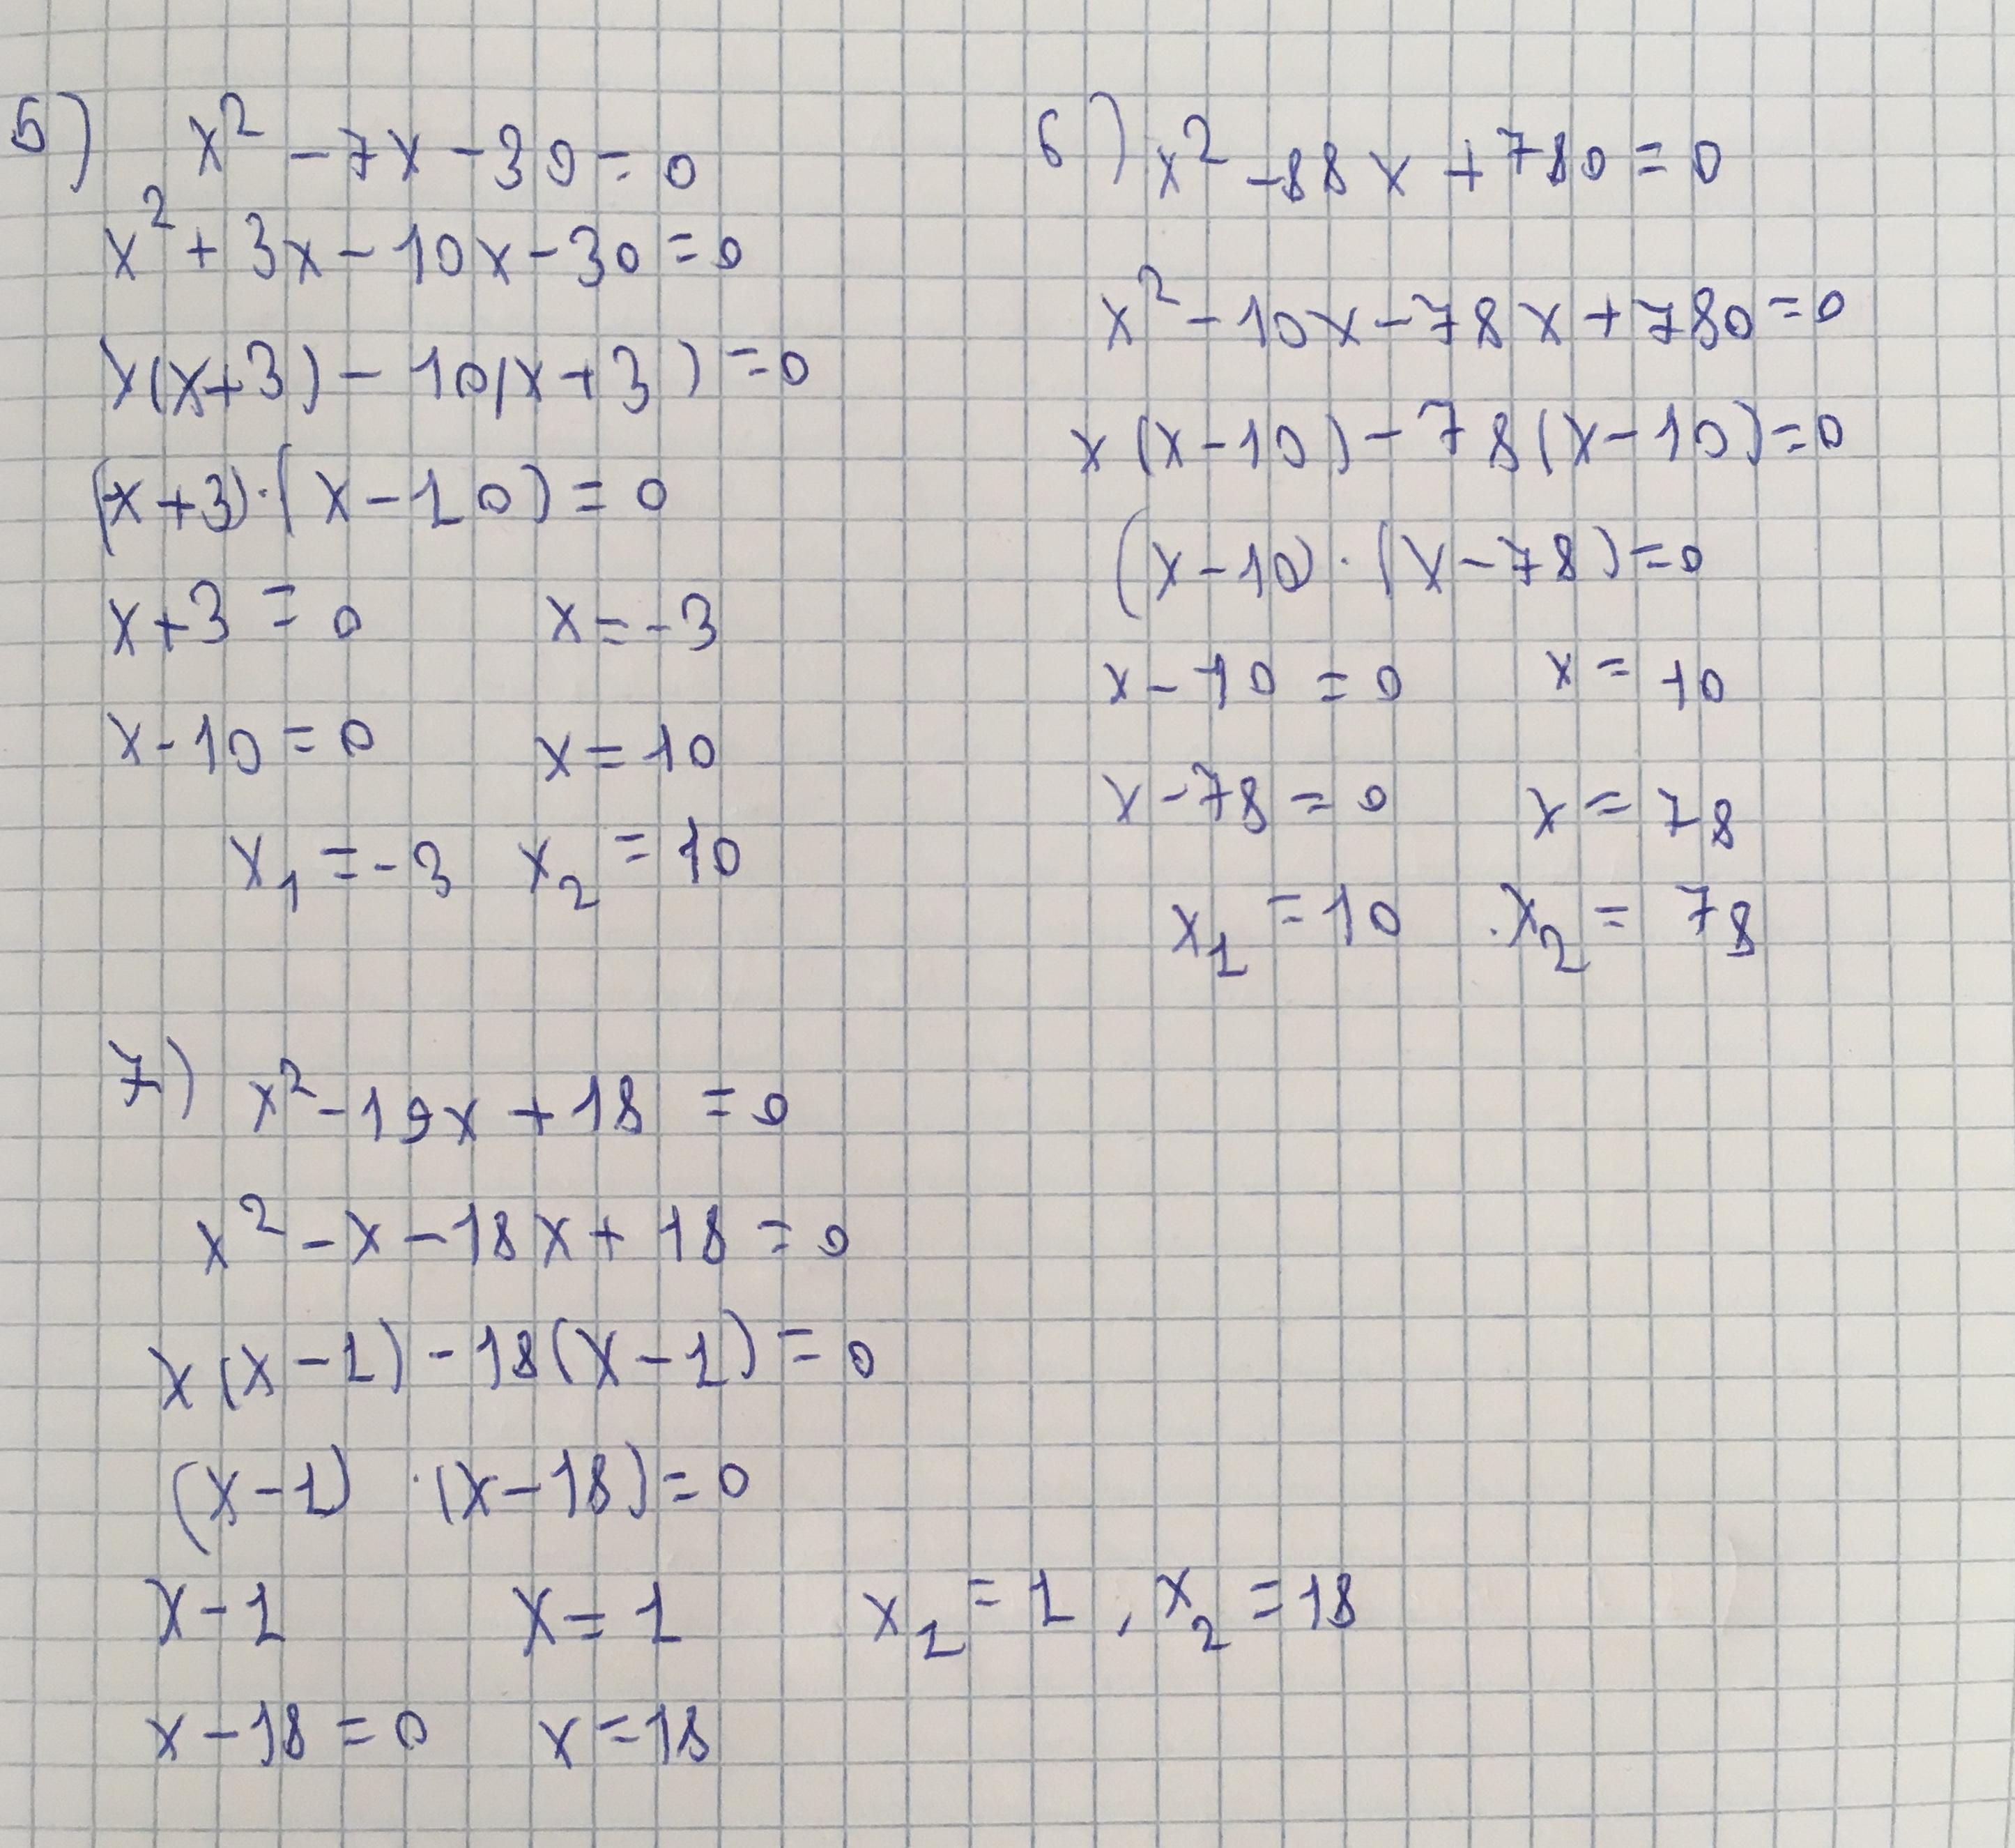 5) x² - 7x - 30 = 0
x² + 3x - 10x - 30 = 0
x(x+3) - 10(x+3) = 0
(x+3)·(x-10) = 0
x+3 = 0 x = -3
x-10 = 0 x = 10
x₁ = -3 x₂ = 10
6) x² - 88x + 780 = 0
x² - 10x - 78x + 780 = 0
x(x-10) - 78(x-10) = 0
(x-10)·(x-78) = 0
x-10 = 0 x = 10
x-78 = 0 x = 78
x₁ = 10 x₂ = 78
7) x² - 19x + 18 = 0
x² - x - 18x + 18 = 0
x(x-1) - 18(x-1) = 0
(x-1)·(x-18) = 0
x-1 x = 1 x₁ = 1, x₂ = 18
x-18 = 0 x = 18